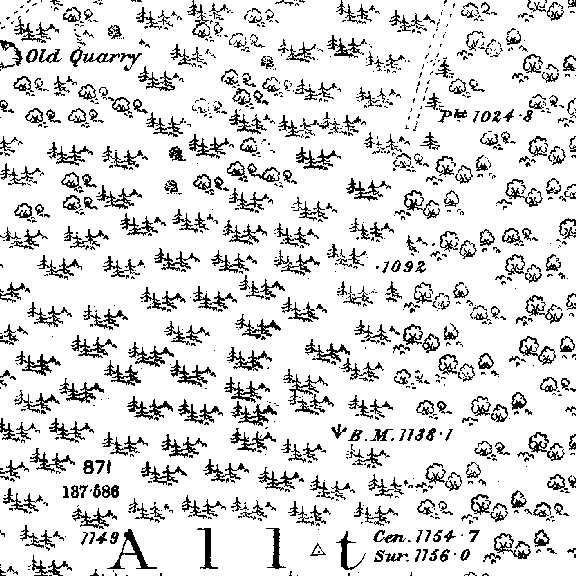 Old Quarry
Pth 1024·8
·1092
B.M. 1138·1
871
137·686
1149
Cen. 1154·7
Allt
Sur. 1156·0